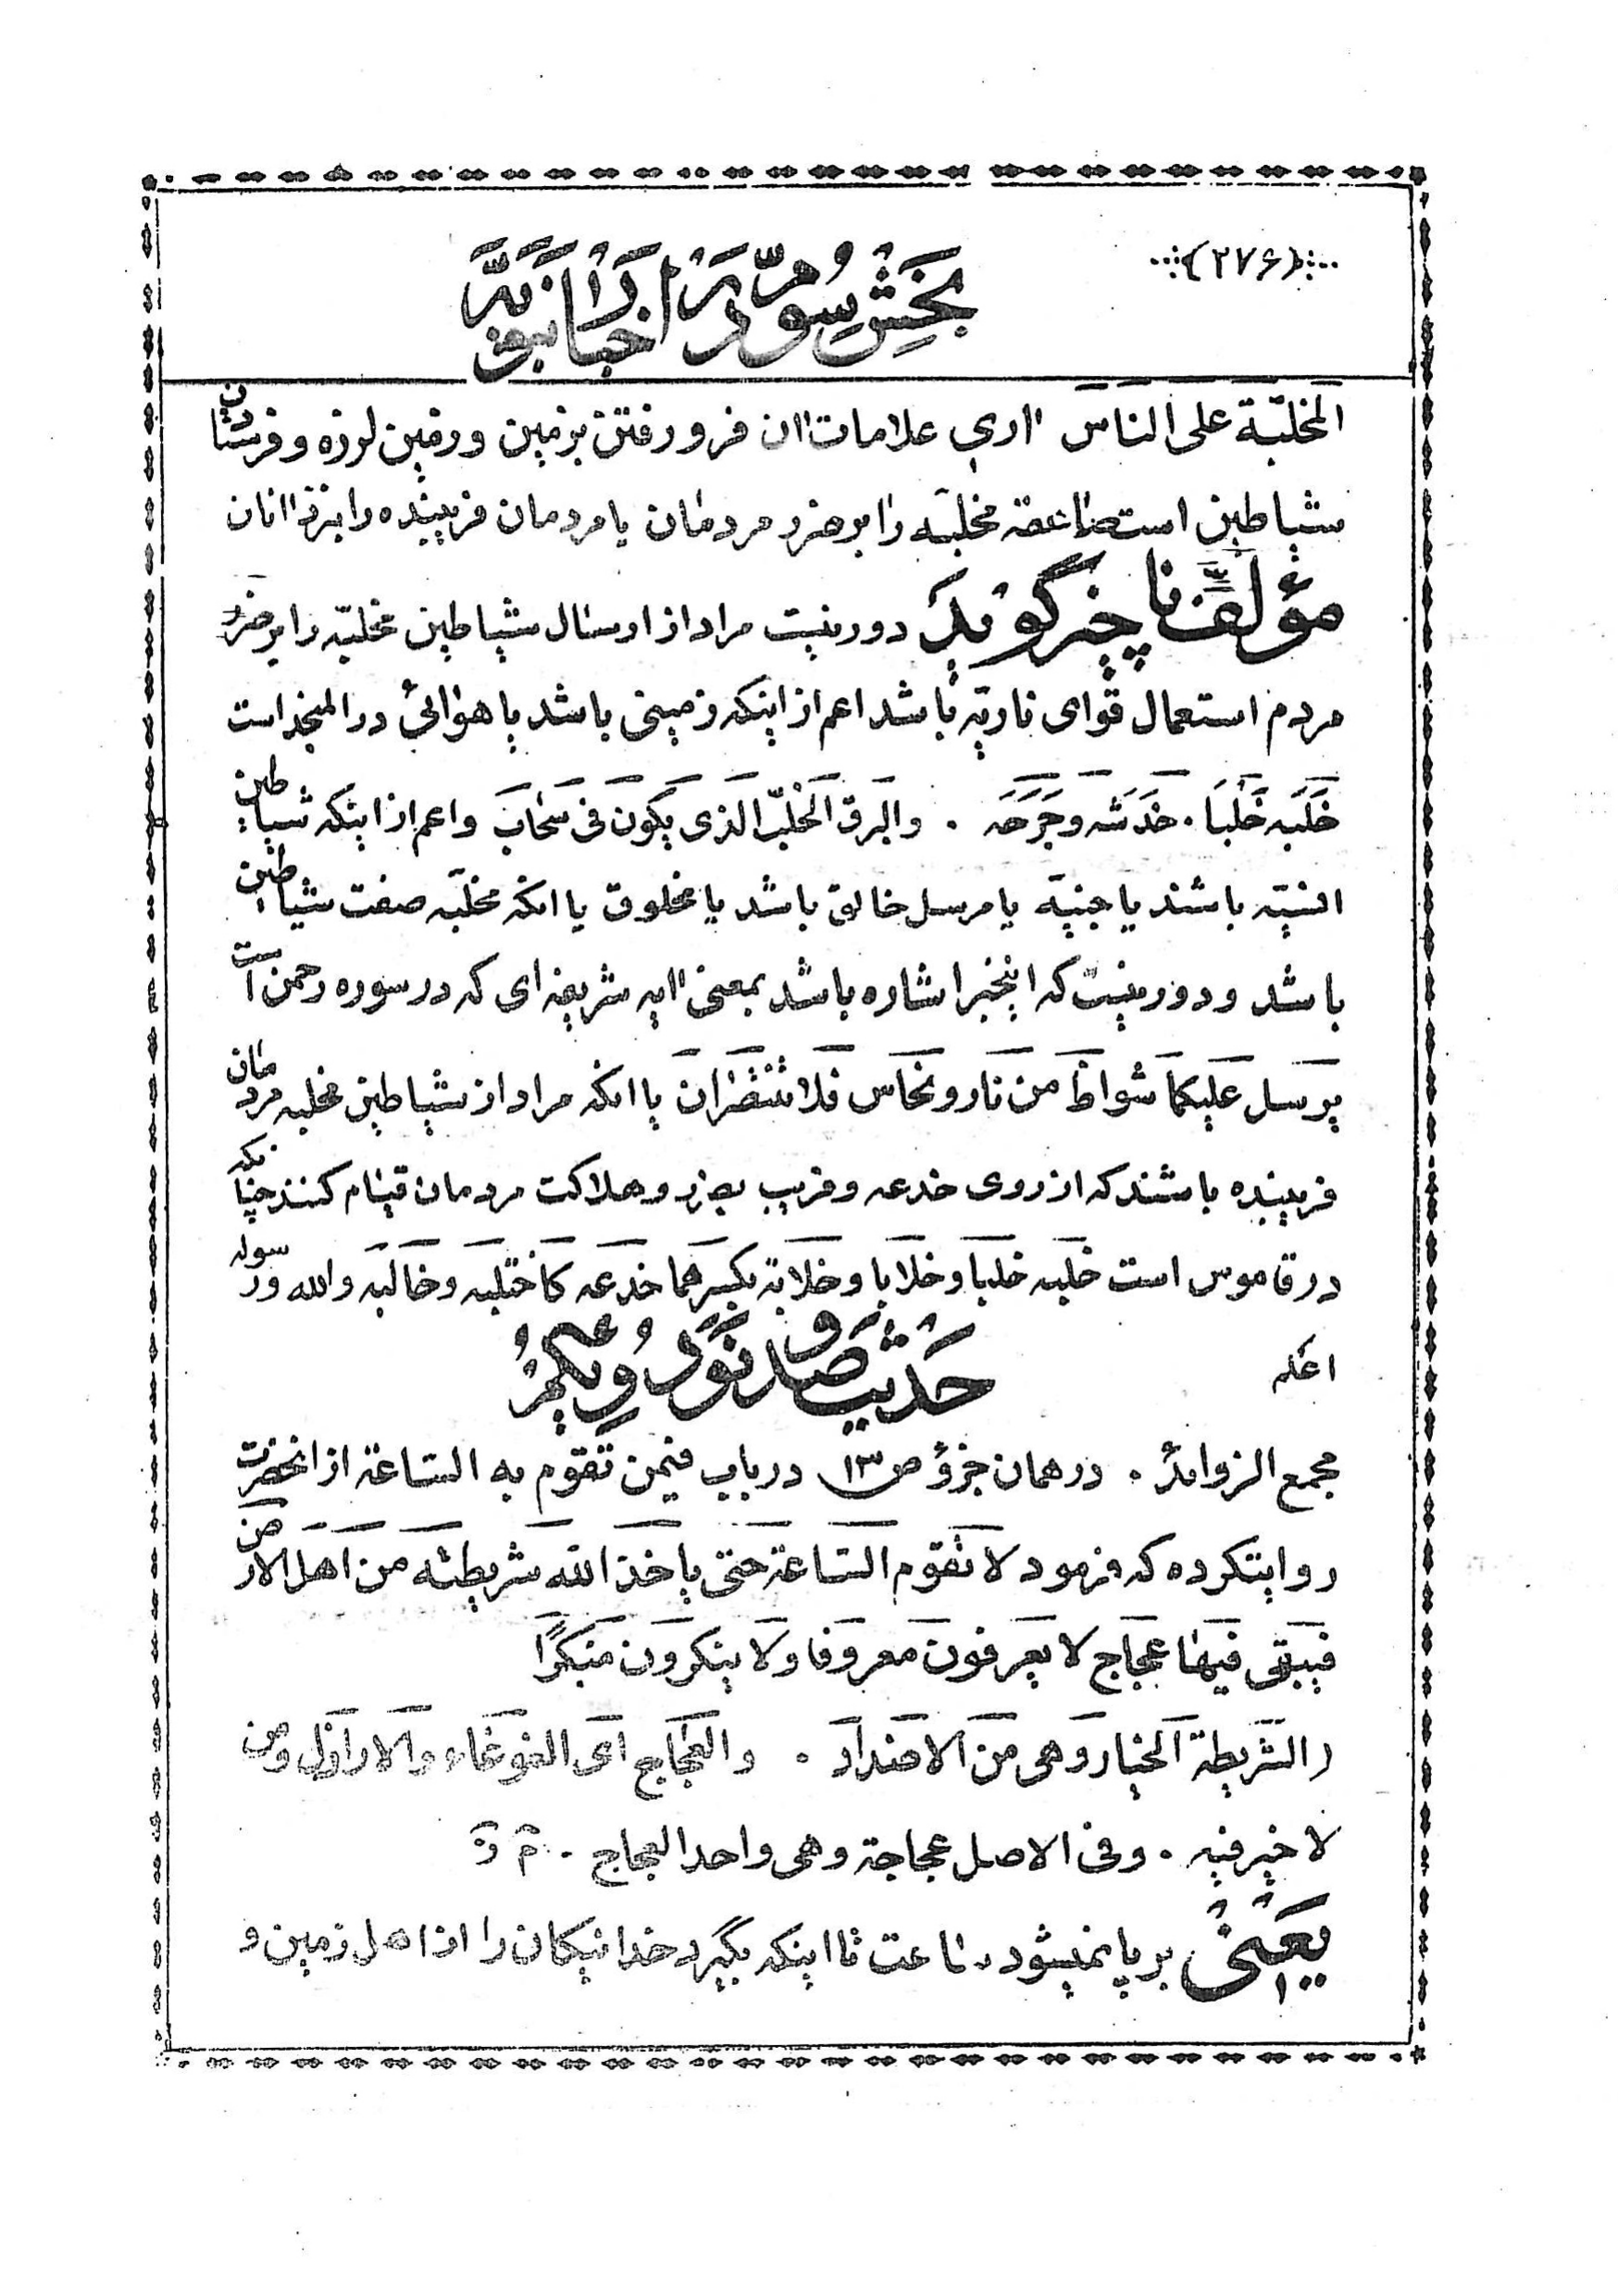 (۲۷۶)
بخش سوم در اخبار نبویه
المخلبة علی الناس اری علامات ان فرو رفتن بزمین و زمین لرزه و فرستادن
شیاطین است صاعقه مخلبه را بر هزد مردمان یا مردمان فریبنده را بزد انان
مؤلف ناچیز گوید دور نیست مراد از ارسال شیاطین مخلبه را بر ضرر
مردم استعمال قوای ناریه باشد اعم از اینکه زمینی باشد یا هوائی در المنجد است
خَلَبَه خَلْبَا . خَدَشَه وجَرَحَه . والبرق الخلّب الذی یکون فی سحاب واعم از اینکه شیاطین
انسیه باشند یا جنیه یا مرسل خالق باشد یا مخلوق یا انکه مخلبه صفت شیاطین
باشد و دور نیست که اینخبر اشاره باشد بمعنی ایه شریفه ای که در سوره رحمن است
یرسل علیکما شواظ من نار ونحاس فلا تنتصران یا انکه مراد از شیاطین مخلبه مردمان
فریبنده باشند که از روی خدعه و فریب بضرر و هلاکت مردمان قیام کنند چنانکه
در قاموس است خلبه خلبا وخلابا وخلابة بکسرهما خدعه کاختلبه وخالبه والله ورسوله
اعلم
حدیث صد و نود و یکم
مجمع الزوائد . در همان جزؤ ص ۱۳ در باب فیمن تقوم به الساعة از انحضرت
روایتکرده که فرمود لا تقوم الساعة حتی یاخذ الله شریطته من اهل الارض
فیبقی فیها عجاج لا یعرفون معروفا ولا ینکرون منکرًا
(الشریطة الخیار وهی من الاضداد . والعجاج ای الغوغاء والاراذل ومن
لا خیر فیه . وفی الاصل عجاجة وهی واحد العجاج . م
یعنی بر پا نمیشود ساعت تا اینکه بگیرد خدا نیکان را از اهل زمین و